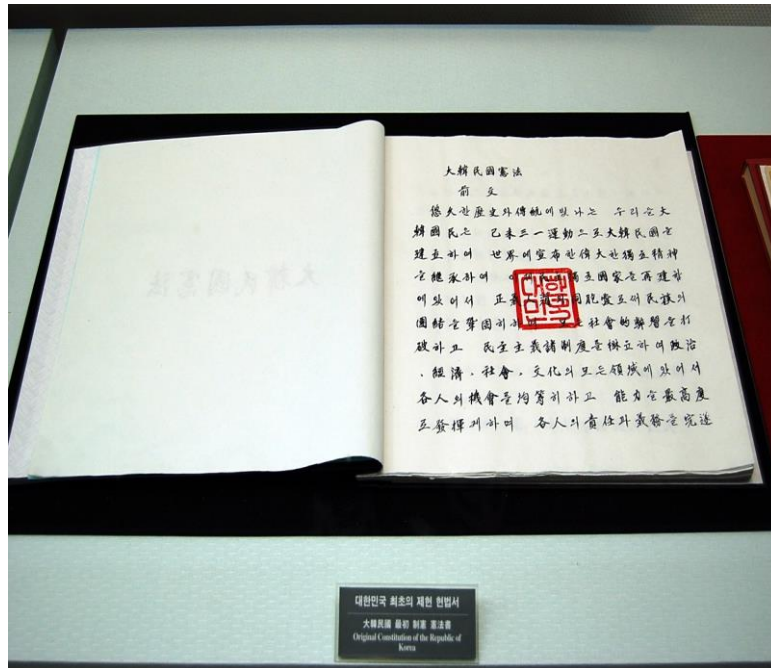 大韓民國憲法
大韓民國憲法
前文
悠久한歷史와傳統에빛나는 우리들大
韓國民은 己未三一運動으로大韓民國을
建立하여 世界에宣布한偉大한獨立精神
을繼承하여 이제民主獨立國家를再建함
에있어서 正義人道와同胞愛로써民族의
團結을鞏固히하며 모든社會的弊習을打
破하고 民主主義諸制度를樹立하여政治
, 經濟, 社會, 文化의모든領域에있어서
各人의機會를均等히하고 能力을最高度
로發揮케하며 各人의責任과義務를完遂
대한
민국
대한민국 최초의 제헌 헌법서
大韓民國 最初 制憲 憲法書
Original Constitution of the Republic of
Korea